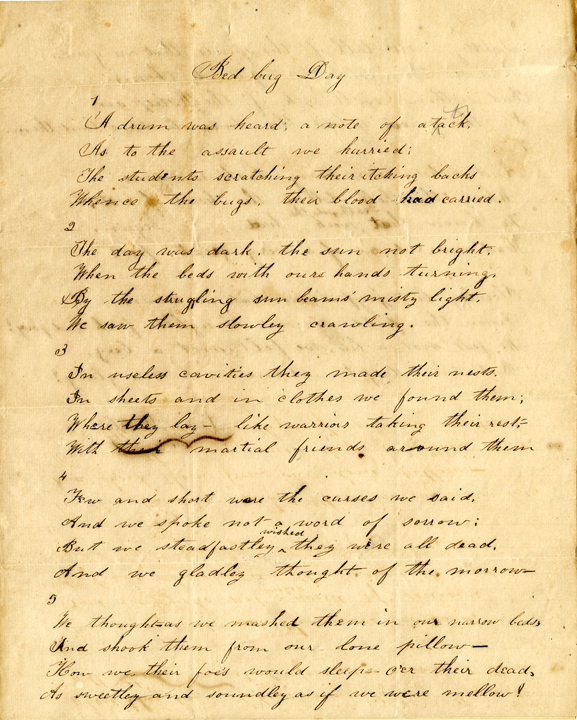 Bed bug Day
1
A drum was heard, a note of atack,
As to the assault we hurried;
The students scratching their itching backs
Whence the bugs, their blood had carried.
2
The day was dark, the sun not bright,
When the beds with ours hands turning,
By the strugling sun beams' misty light,
We saw them slowley crawling.
3
In useless cavities they made their nests.
In sheets and in clothes we found them;
Where they lay - like warriors taking their rest-
With their martial friends around them
4
Few and short were the curses we said,
And we spoke not a word of sorrow;
But we steadfastley wished they were all dead,
And we gladley thought of the morrow-
5
We thought-as we mashed them in our narrow beds,
And shook them from our lone pillow-
How we, their foes would sleep o'er their dead,
As sweetley and soundley as if we were mellow!